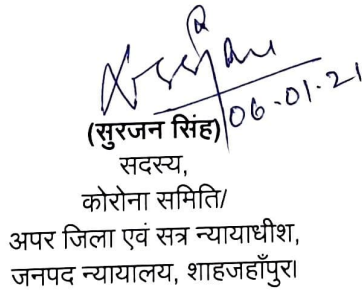 06-01-21
(सुरजन सिंह)
सदस्य,
कोरोना समिति/
अपर जिला एवं सत्र न्यायाधीश,
जनपद न्यायालय, शाहजहाँपुर।